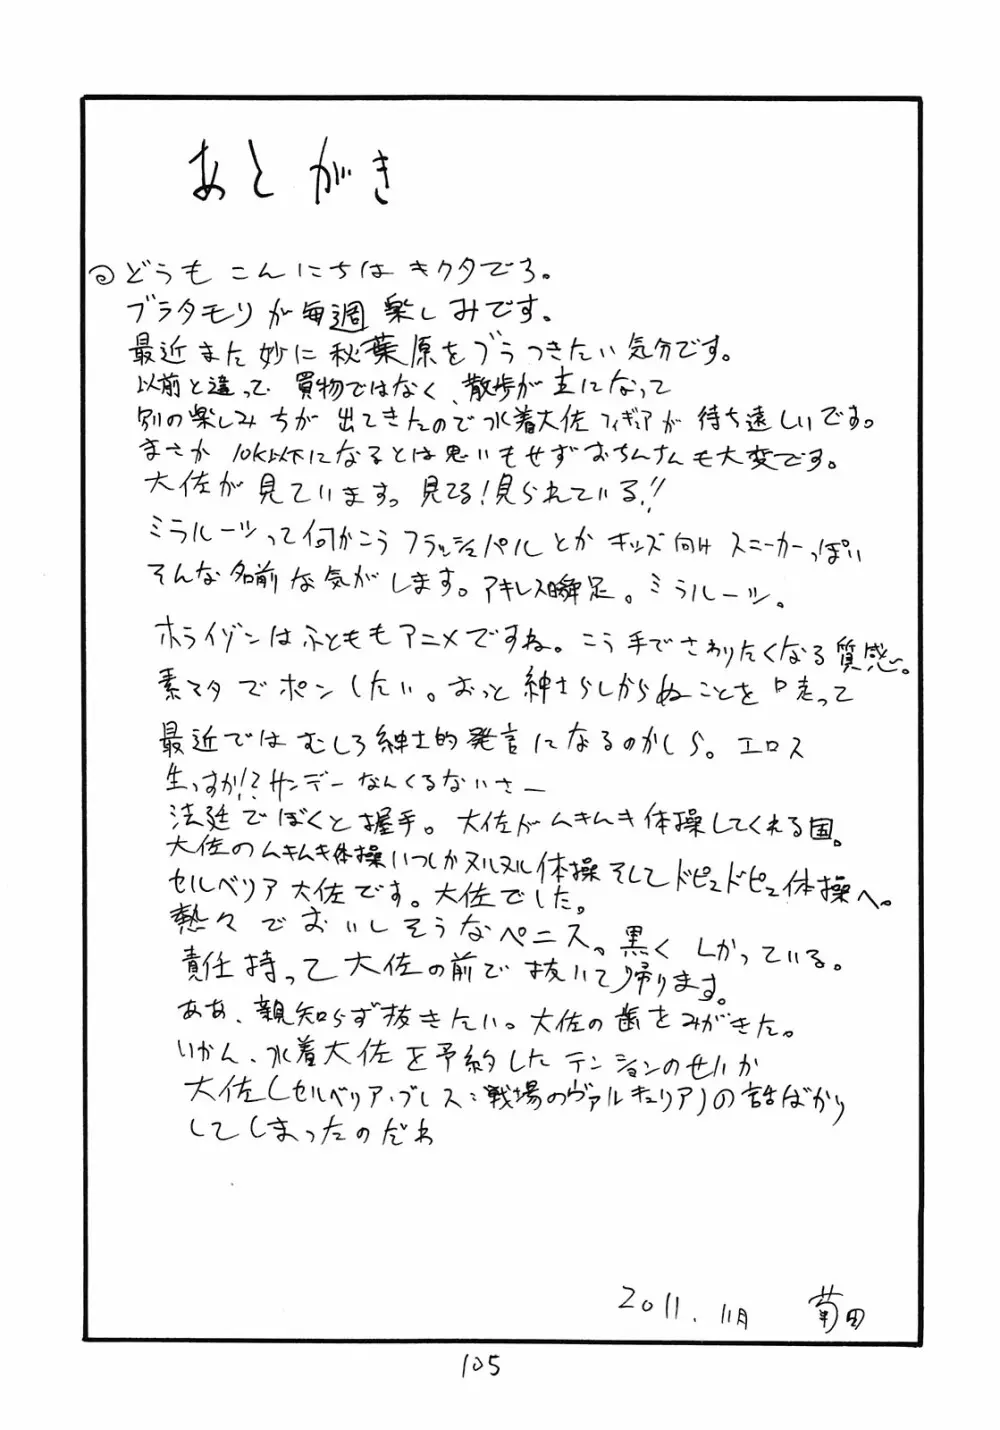 あとがき
どうも こんにちは キクタでろ。
ブラタモリが毎週 楽しみです。
最近また妙に秋葉原をブラつきたい気分です。
以前と違って 買物ではなく、散歩が主になって
別の楽しみちが出てきたので水着大佐フィギュアが 待ち遠しいです。
まさか 10K以下になるとは思いもせずおちんさんも大変です。
大佐が見ています。見てる!見られている!!
ミラルーツって何かこう フラッシュパルとか キッズ向け スニーカーっぽい
そんな名前な気がします。アキレス瞬足。ミラルーツ。
ホライゾンはふとももアニメですね。こう手でさわりたくなる質感。
素マタでポンしたい。おっと紳士らしからぬことを口走って
最近では むしろ紳士的発言になるのかしら。エロス
生っすか!?サンデー なんくるないさー
法廷でぼくと握手。大佐がムキムキ体操してくれる国。
大佐のムキムキ体操いつしかヌルヌル体操そしてドピュドピュ体操へ。
セルベリア大佐です。大佐でした。
熱々でおいしそうなペニス。黒く しかっている。
責任持って大佐の前で抜いて帰ります。
ああ、親知らず抜きたい。大佐の歯をみがきた。
いかん、水着大佐を予約したテンションのせいか
大佐(セルベリア・ブレス:戦場のヴァルキュリア)の話ばかり
してしまったのだわ
2011.11月 菊田
105